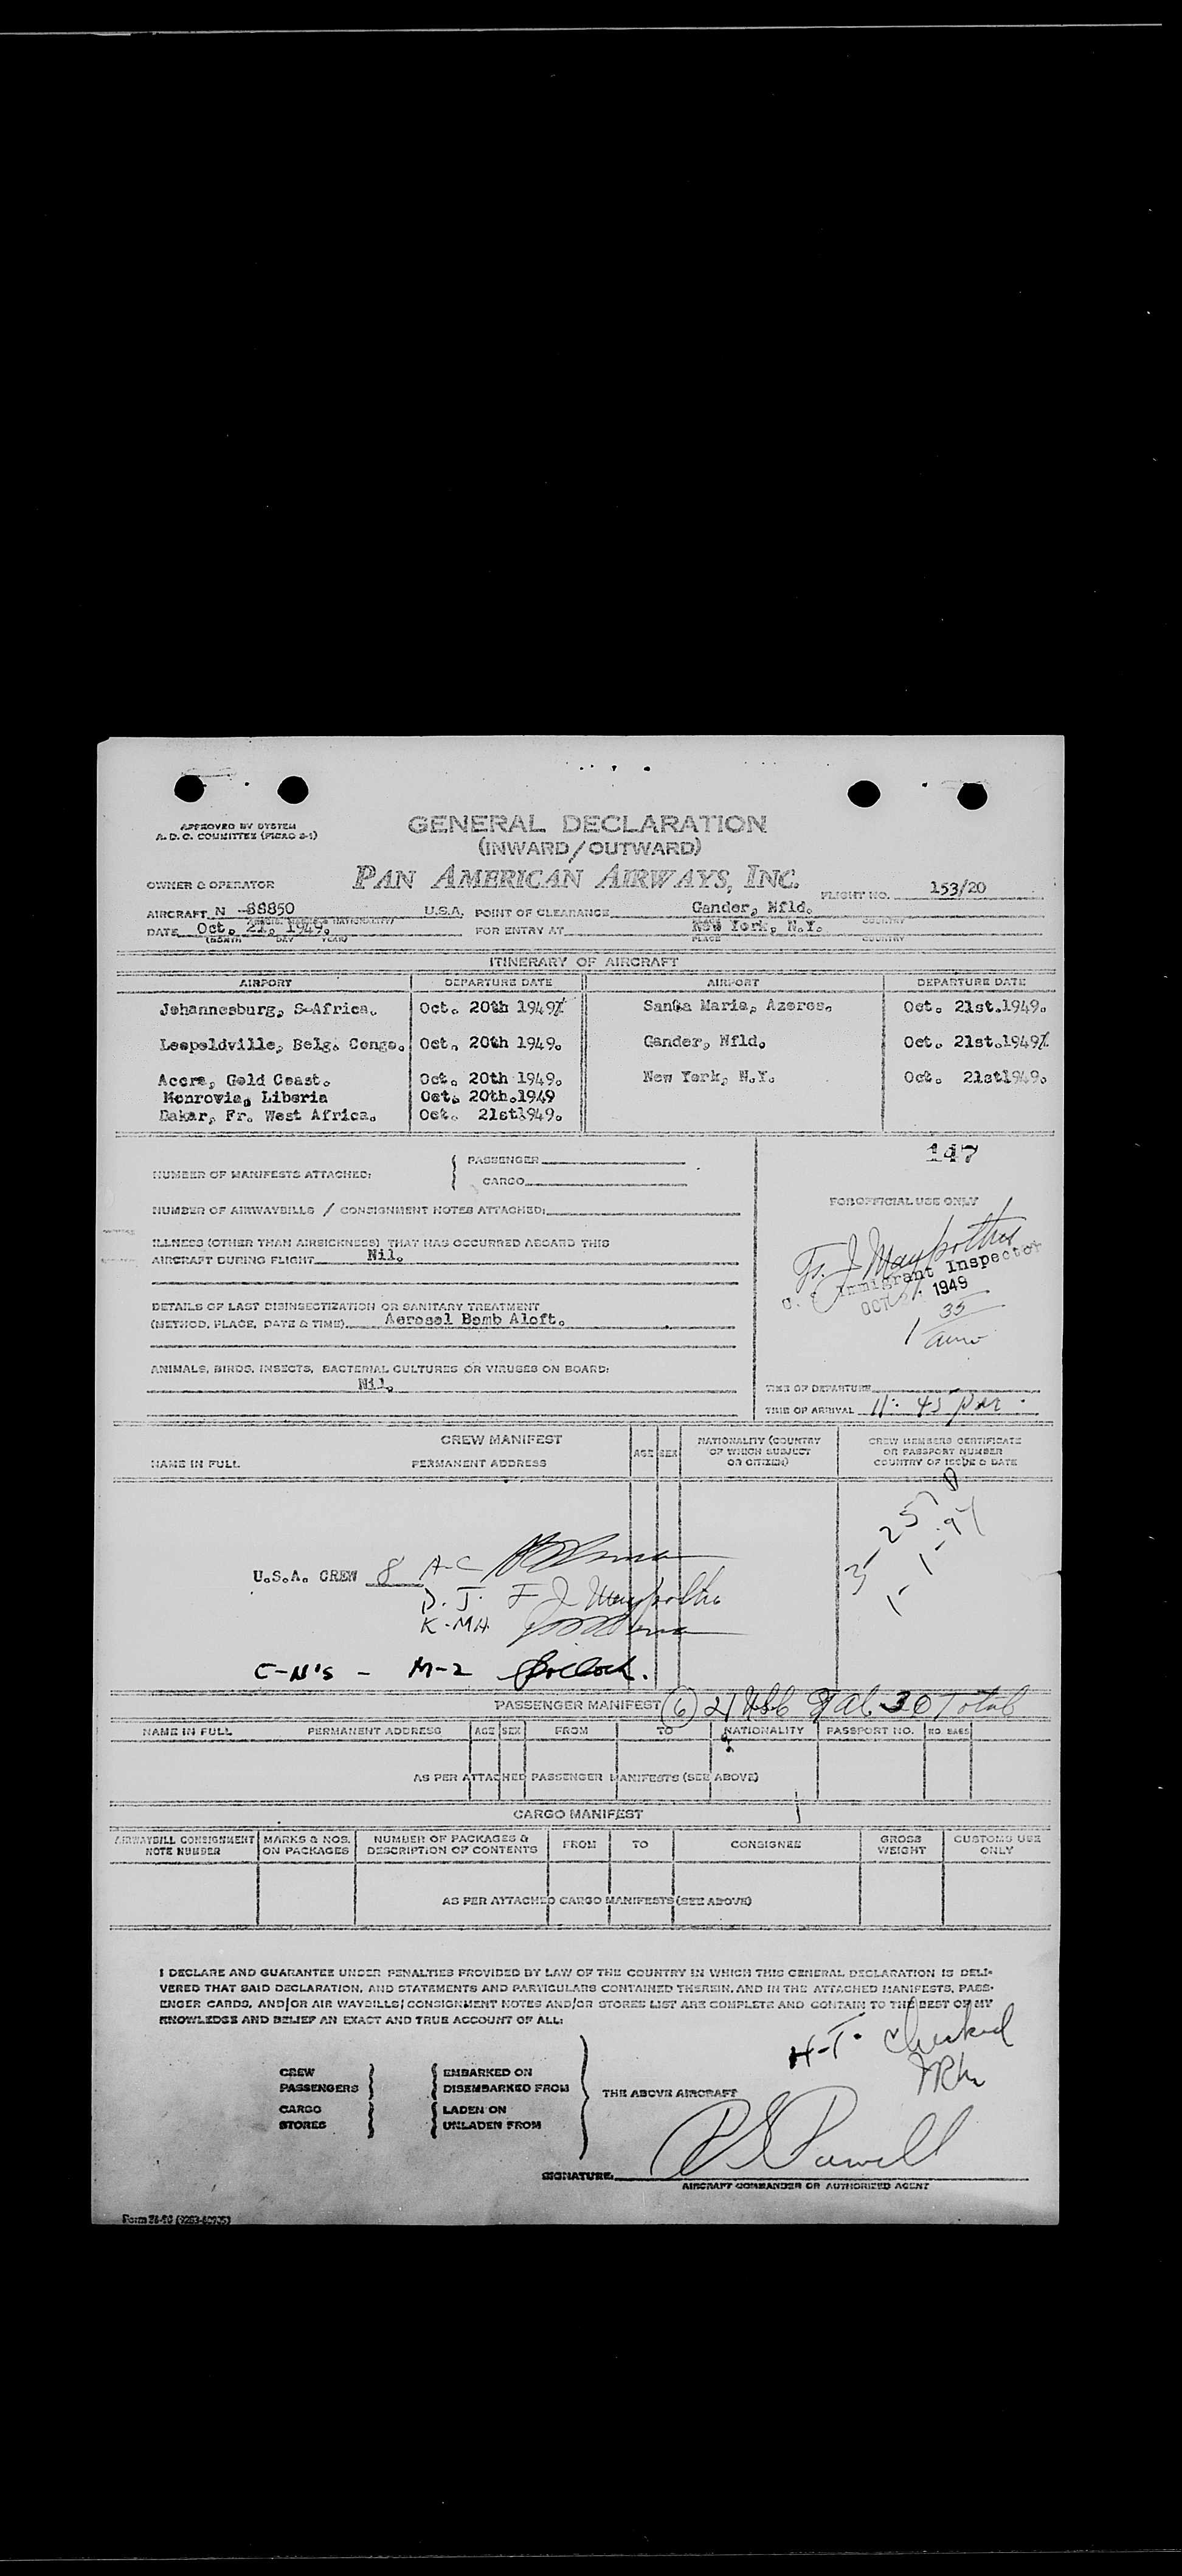 APPROVED BY SYSTEM
A. D. C. COMMITTEE (PICAO 2-1)
GENERAL DECLARATION
(INWARD/OUTWARD)
OWNER & OPERATOR
PAN AMERICAN AIRWAYS, INC.
FLIGHT NO. 153/20
AIRCRAFT N -88850 U.S.A. POINT OF CLEARANCE Gander, Nfld.
DATE Oct. 21, 1949. FOR ENTRY AT New York, N.Y.
(MONTH DAY YEAR) PLACE COUNTRY
ITINERARY OF AIRCRAFT
AIRPORT DEPARTURE DATE AIRPORT DEPARTURE DATE
Johannesburg, S-Africa. Oct. 20th 1949. Santa Maria, Azores. Oct. 21st.1949.
Leopoldville, Belg. Congo. Oct. 20th 1949. Gander, Nfld. Oct. 21st.1949.
Accra, Gold Coast. Oct. 20th 1949. New York, N.Y. Oct. 21st1949.
Monrovia, Liberia Oct. 20th.1949
Dakar, Fr. West Africa. Oct. 21st1949.
147
NUMBER OF MANIFESTS ATTACHED: { PASSENGER
CARGO
FOR OFFICIAL USE ONLY
NUMBER OF AIRWAYBILLS / CONSIGNMENT NOTES ATTACHED:
ILLNESS (OTHER THAN AIRSICKNESS) THAT HAS OCCURRED ABOARD THIS
AIRCRAFT DURING FLIGHT Nil.
U. S. Immigrant Inspector
OCT 21 1949
35
DETAILS OF LAST DISINSECTIZATION OR SANITARY TREATMENT
(METHOD, PLACE, DATE & TIME) Aerosol Bomb Aloft.
ANIMALS, BIRDS, INSECTS, BACTERIAL CULTURES OR VIRUSES ON BOARD:
Nil.
TIME OF DEPARTURE
TIME OF ARRIVAL 11:45 pm
CREW MANIFEST
NAME IN FULL PERMANENT ADDRESS AGE SEX NATIONALITY (COUNTRY OF WHICH SUBJECT OR CITIZEN) CREW MEMBERS CERTIFICATE OR PASSPORT NUMBER COUNTRY OF ISSUE & DATE
U.S.A. CREW 8 A-C
D. J.
K-MH
C-N's - M-2
PASSENGER MANIFEST (6) 21 USC 9 Al 30 Total
NAME IN FULL PERMANENT ADDRESS AGE SEX FROM TO NATIONALITY PASSPORT NO. NO. BAGS
AS PER ATTACHED PASSENGER MANIFESTS (SEE ABOVE)
CARGO MANIFEST
AIRWAYBILL CONSIGNMENT NOTE NUMBER MARKS & NOS. ON PACKAGES NUMBER OF PACKAGES & DESCRIPTION OF CONTENTS FROM TO CONSIGNEE GROSS WEIGHT CUSTOMS USE ONLY
AS PER ATTACHED CARGO MANIFESTS (SEE ABOVE)
I DECLARE AND GUARANTEE UNDER PENALTIES PROVIDED BY LAW OF THE COUNTRY IN WHICH THIS GENERAL DECLARATION IS DELI-
VERED THAT SAID DECLARATION, AND STATEMENTS AND PARTICULARS CONTAINED THEREIN, AND IN THE ATTACHED MANIFESTS, PASS-
ENGER CARDS, AND/OR AIR WAYBILLS/CONSIGNMENT NOTES AND/OR STORES LIST ARE COMPLETE AND CONTAIN TO THE BEST OF MY
KNOWLEDGE AND BELIEF AN EXACT AND TRUE ACCOUNT OF ALL:
H-T. Checked
CREW EMBARKED ON
PASSENGERS DISEMBARKED FROM THE ABOVE AIRCRAFT
CARGO LADEN ON
STORES UNLADEN FROM
SIGNATURE Powell
AIRCRAFT COMMANDER OR AUTHORIZED AGENT